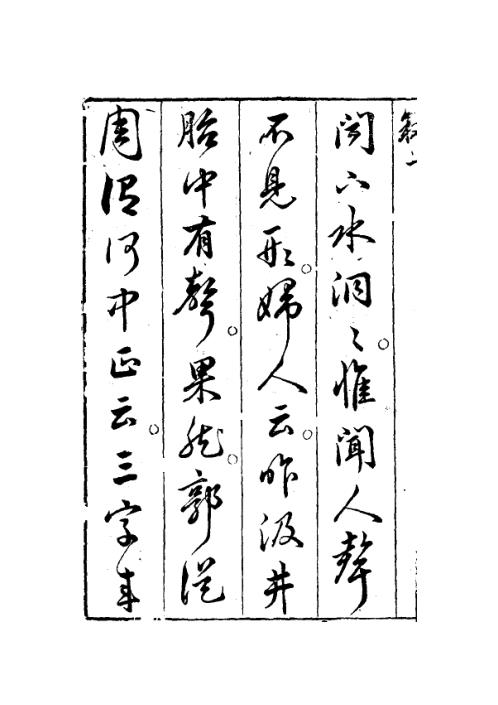 水洞〻惟聞人聲
不見形婦人云昨汲井
胎中有聲果然郭從
周謂何中正云三字